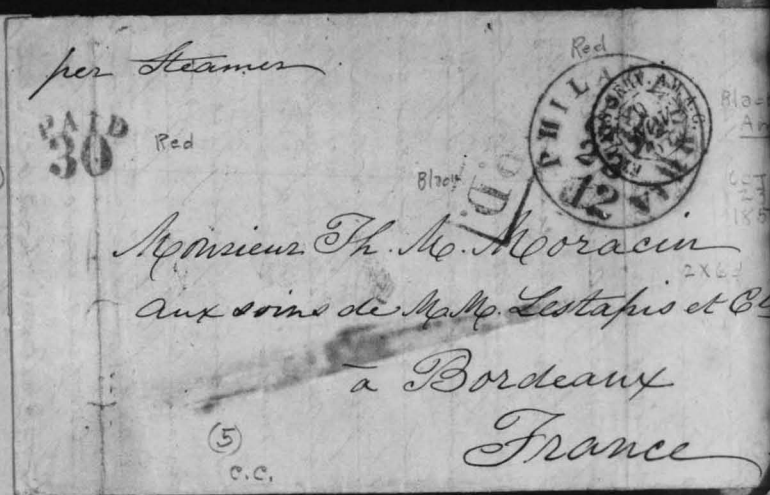 per Steamer
PAID
30
Red
Red
PHILA
12
Black
P.D.
Monsieur Th. M. Moracin
aux soins de M.M. Lestapis et C
à Bordeaux
France
2X6
OCT
185
5
C.C.